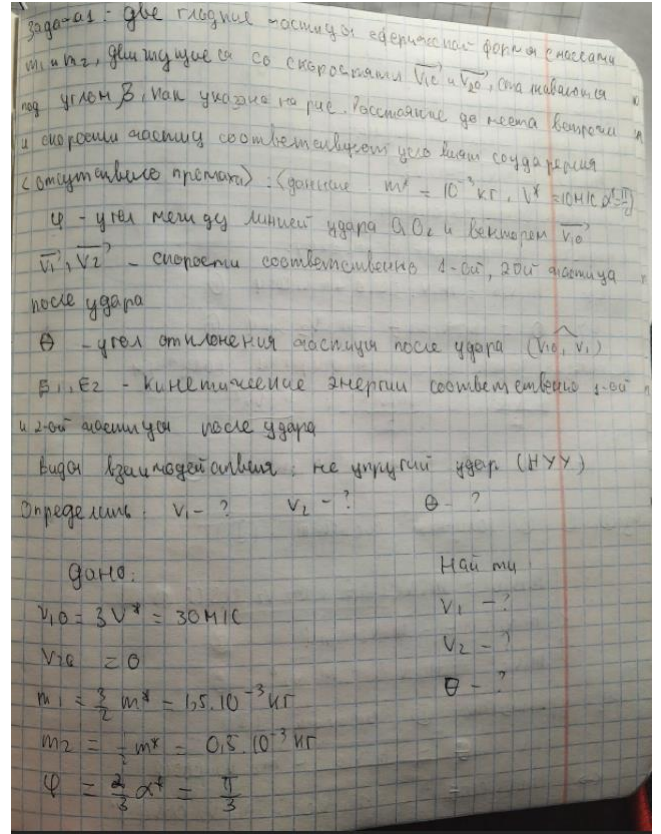 Задача 1 - две гладкие частицы сферической форма с массами
m₁ и m₂, движущиеся со скоростями V₁₀ и V₂₀, сталкиваются
под углом β, как указано на рис. Расстояние до места встречи
и скорости частиц соответсвует условиям соударения
(отсутсвию промаха): (данные m* = 10⁻³ кг, V* = 10м/с α* = π/2)
φ - угол между линией удара O₁O₂ и вектором V₁₀
V₁, V₂ - скорости соответственно 1-ой, 2ой частица
после удара
θ - угол отклонения частицы после удара (V₁₀, V₁)
E₁, E₂ - кинетические энергии соответственно 1-ой
и 2-ой частицы после удара
Виды взаимодействия: не упругий удар (НУУ)
Определить: V₁ - ? V₂ - ? θ - ?
Дано: Найти
V₁₀ = 3V* = 30м/с V₁ - ?
V₂₀ = 0 V₂ - ?
m₁ = 3/2 m* = 1,5·10⁻³ кг θ - ?
m₂ = 1/2 m* = 0,5·10⁻³ кг
φ = 2/3 α* = π/3